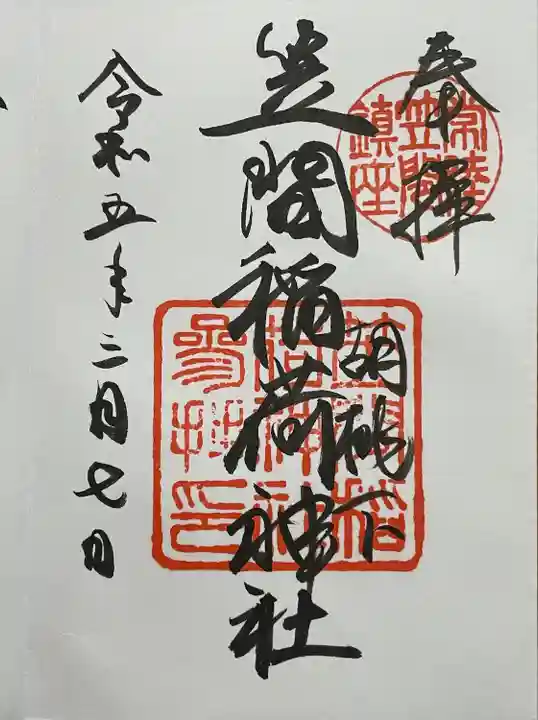 奉拝
常陸
笠間
鎮座
胡桃下
笠間稲荷神社
笠間稲
荷神社
参拝印
令和五年三月七日